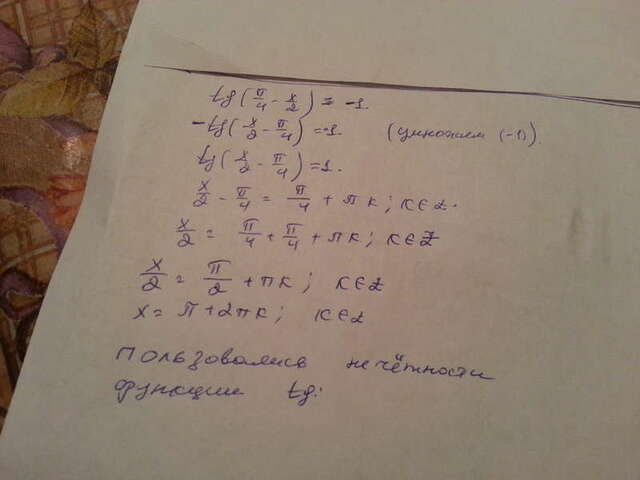 tg(π/4 - x/2) = -1.
-tg(x/2 - π/4) = -1. (умножаем (-1)).
tg(x/2 - π/4) = 1.
x/2 - π/4 = π/4 + πк; к∈Z.
x/2 = π/4 + π/4 + πк; к∈Z
x/2 = π/2 + πк; к∈Z
x = π + 2πк; к∈Z
Пользовались нечётности
функции tg.